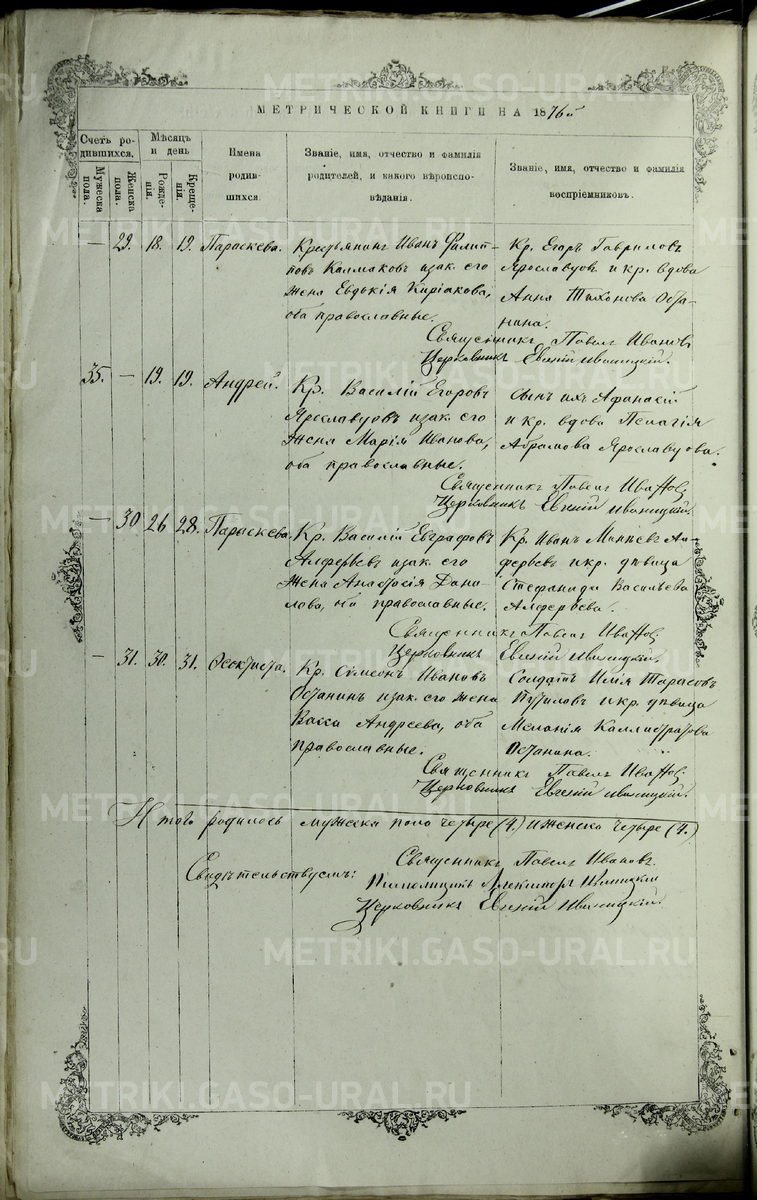 METRIKI.GASO-URAL.RU
МЕТРИЧЕСКОЙ КНИГИ НА 1876й
Счетъ ро-
дившихся.
Мужеска пола.
Женска пола.
Мѣсяцъ
и день
Рожде-
нія.
Креще-
нія.
Имена
родив-
шихся.
Званіе, имя, отчество и фамилія
родителей, и какого вѣроиспо-
вѣданія.
Званіе, имя, отчество и фамилія
воспріемниковъ.
— 29. 18. 19. Параскева.
Крестьянинъ Иванъ Филип-
повъ Калмаковъ и зак. его
жена Евдокія Киріакова,
оба православные.
Кр. Егоръ Гавриловъ
Ярославцовъ и кр. вдова
Анна Тихонова Оста-
нина.
Священникъ Павелъ Ивановъ
Церковникъ Евгеній
35. — 19. 19. Андрей.
Кр. Василій Егоровъ
Ярославцовъ и зак. его
жена Марія Иванова,
оба православные.
Сынъ ихъ Афанасій
и кр. вдова Пелагія
Абрамова Ярославцова.
Священникъ Павелъ Ивановъ
Церковникъ Евгеній
— 30 26 28. Параскева.
Кр. Василій Евграфовъ
Алферьевъ и зак. его
жена Анастасія Дани-
лова, оба православные.
Кр. Иванъ Ал-
ферьевъ и кр. дѣвица
Стефанида Васильева
Алферьева.
Священникъ Павелъ Ивановъ
Церковникъ Евгеній
— 31. 30. 31. Феоктиста.
Кр. Симеонъ Ивановъ
Останинъ и зак. его жена
Васса Андреева, оба
православные.
Солдатъ Илія Тарасовъ
Путиловъ и кр. дѣвица
Меланія Каллистратова
Останина.
Священникъ Павелъ Ивановъ
Церковникъ Евгеній
Итого родилось мужеска пола четыре (4.) и женска четыре (4.)
Свидѣтельствуемъ:
Священникъ Павелъ Ивановъ.
Александръ
Церковникъ Евгеній